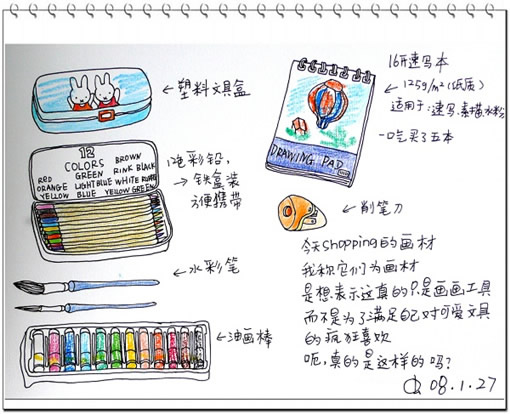 塑料文具盒
12
COLORS
BROWN
RED
GREEN
PINK
BLACK
ORANGE
LIGHTBLUE
WHITE
YELLOW
BLUE
YELLOW GREEN
彩铅,
铁盒装
方便携带
水彩笔
油画棒
16开速写本
125g/m²(纸质)
适用于:速写.素描.水粉
一口气买了五本
DRAWING PAD
削笔刀
今天shopping的画材
我称它们为画材
是想表示这真的只是画画工具
而不是为了满足自己对可爱文具
的疯狂喜欢
呃,真的是这样的吗?
08.1.27